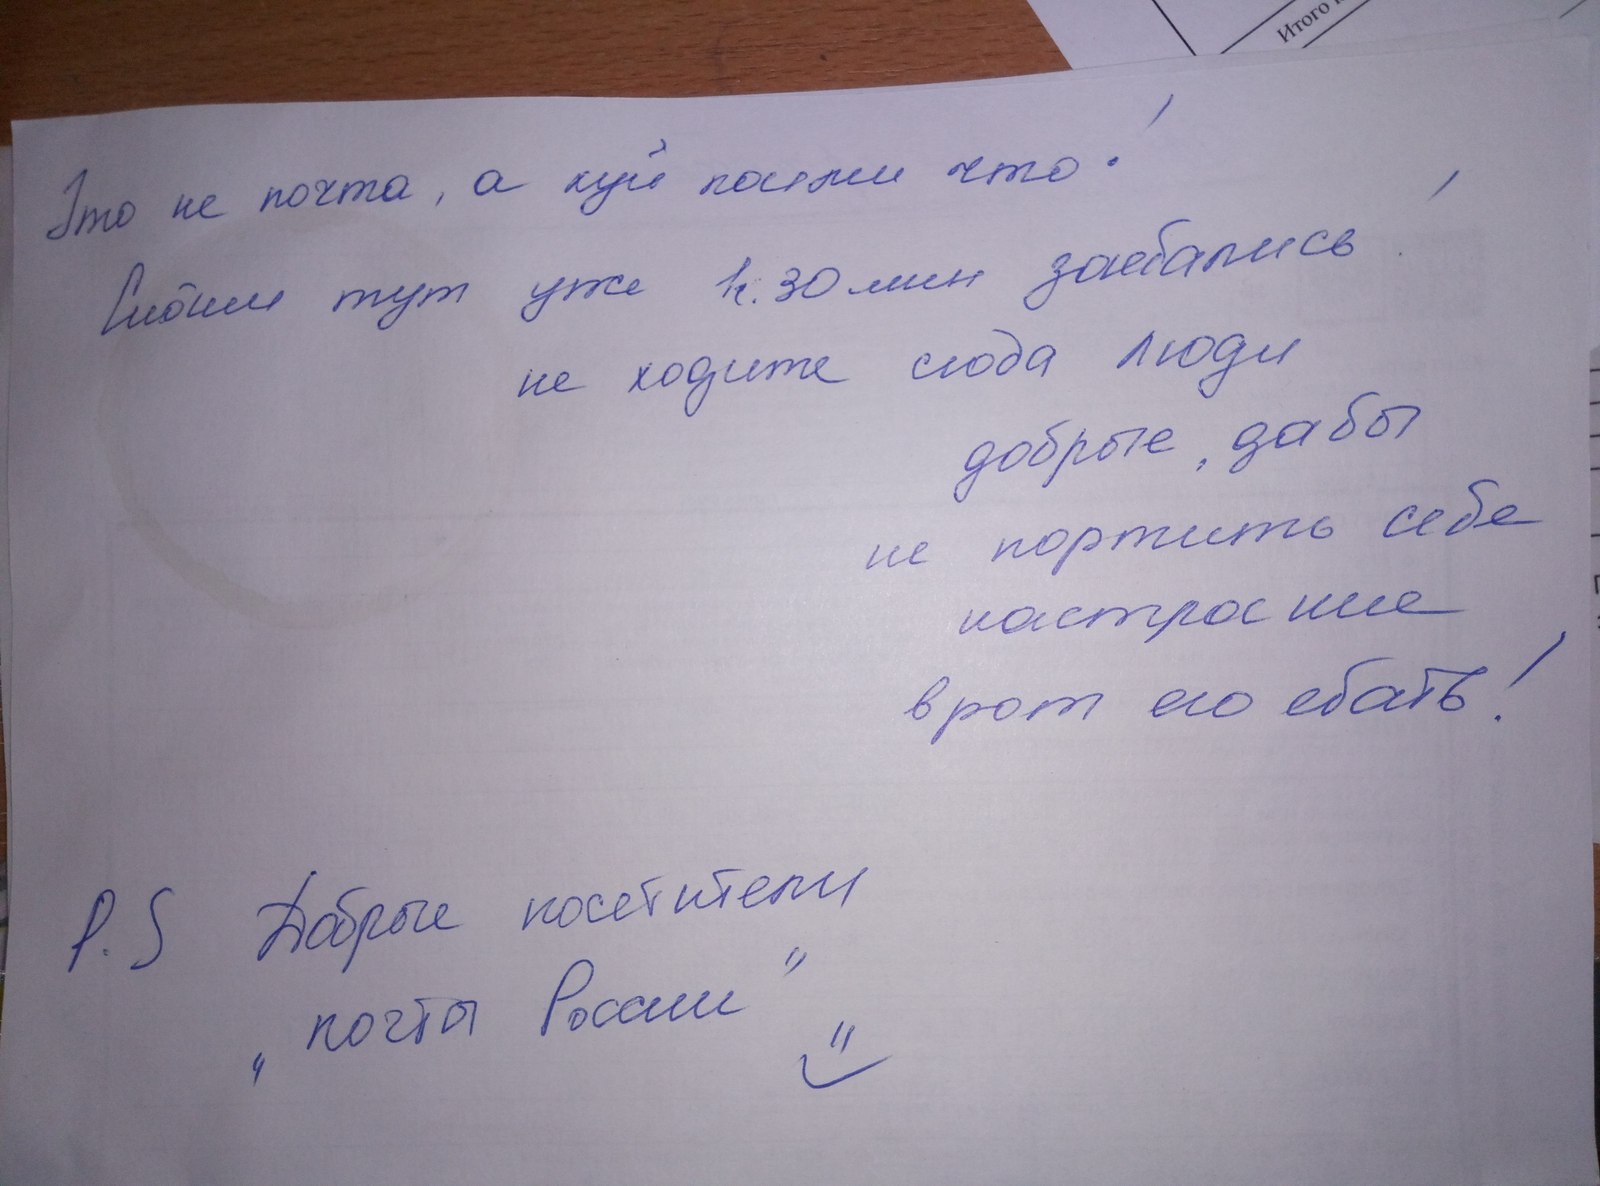 Итого
Это не почта, а хуй пойми что!
Стоим тут уже 1ч.30мин заебались!
не ходите сюда люди
добрые, дабы
не портить себе
настроение
врот его ебать!
P.S Добрые посетители
„почты России”